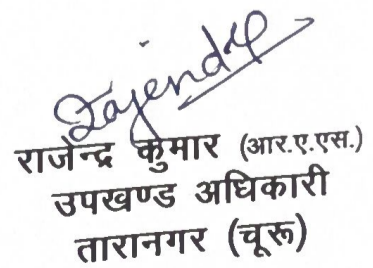 Rajendra
राजेन्द्र कुमार (आर.ए.एस.)
उपखण्ड अधिकारी
तारानगर (चूरू)